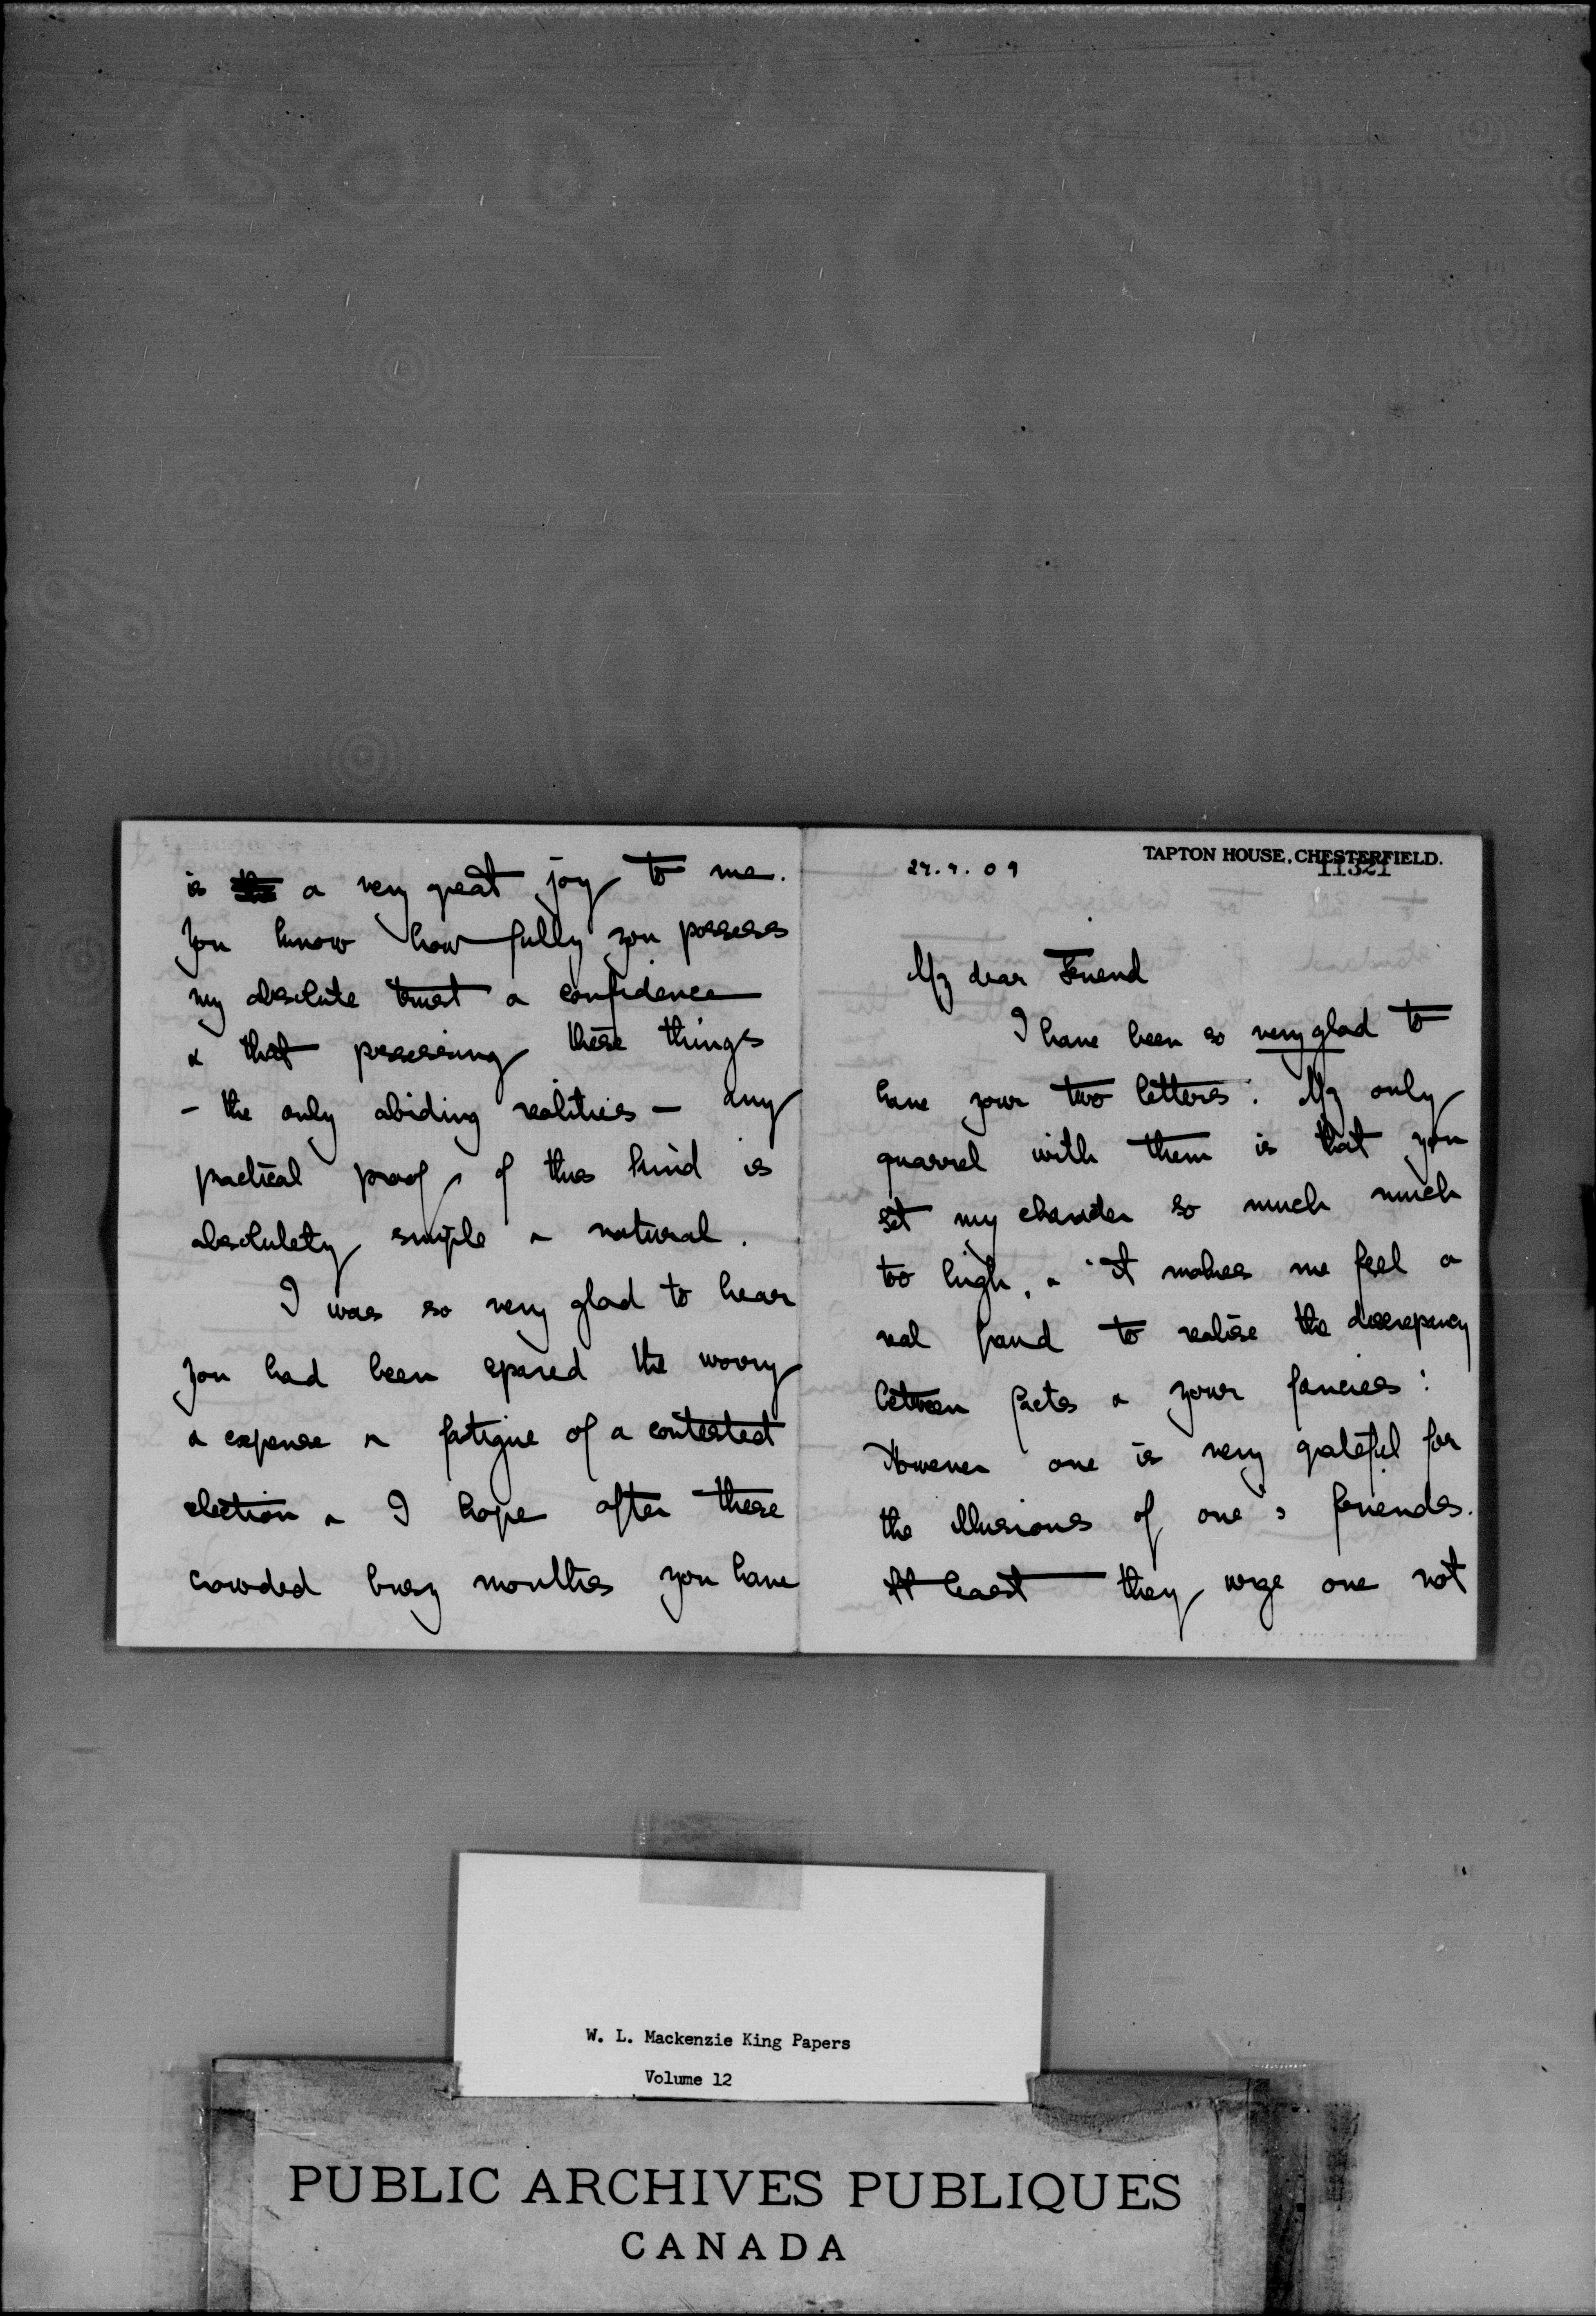 TAPTON HOUSE, CHESTERFIELD.
11321
My dear Friend
I have been so very glad to
have your two letters. My only
quarrel with them is that you
set my character so much much
too high, & it makes me feel a
real fraud to realise the discrepancy
between facts & your fancies:
However one is very grateful for
the illusions of one's friends.
At least they urge one not
is a very great joy to me.
You know how fully you possess
my absolute trust & confidence
& that possessing these things
- the only abiding realities - any
practical proof of this kind is
absolutely simple & natural.
I was so very glad to hear
you had been spared the worry
& expense & fatigue of a contested
election & I hope after these
crowded busy months you have
W. L. Mackenzie King Papers
Volume 12
PUBLIC ARCHIVES PUBLIQUES
CANADA